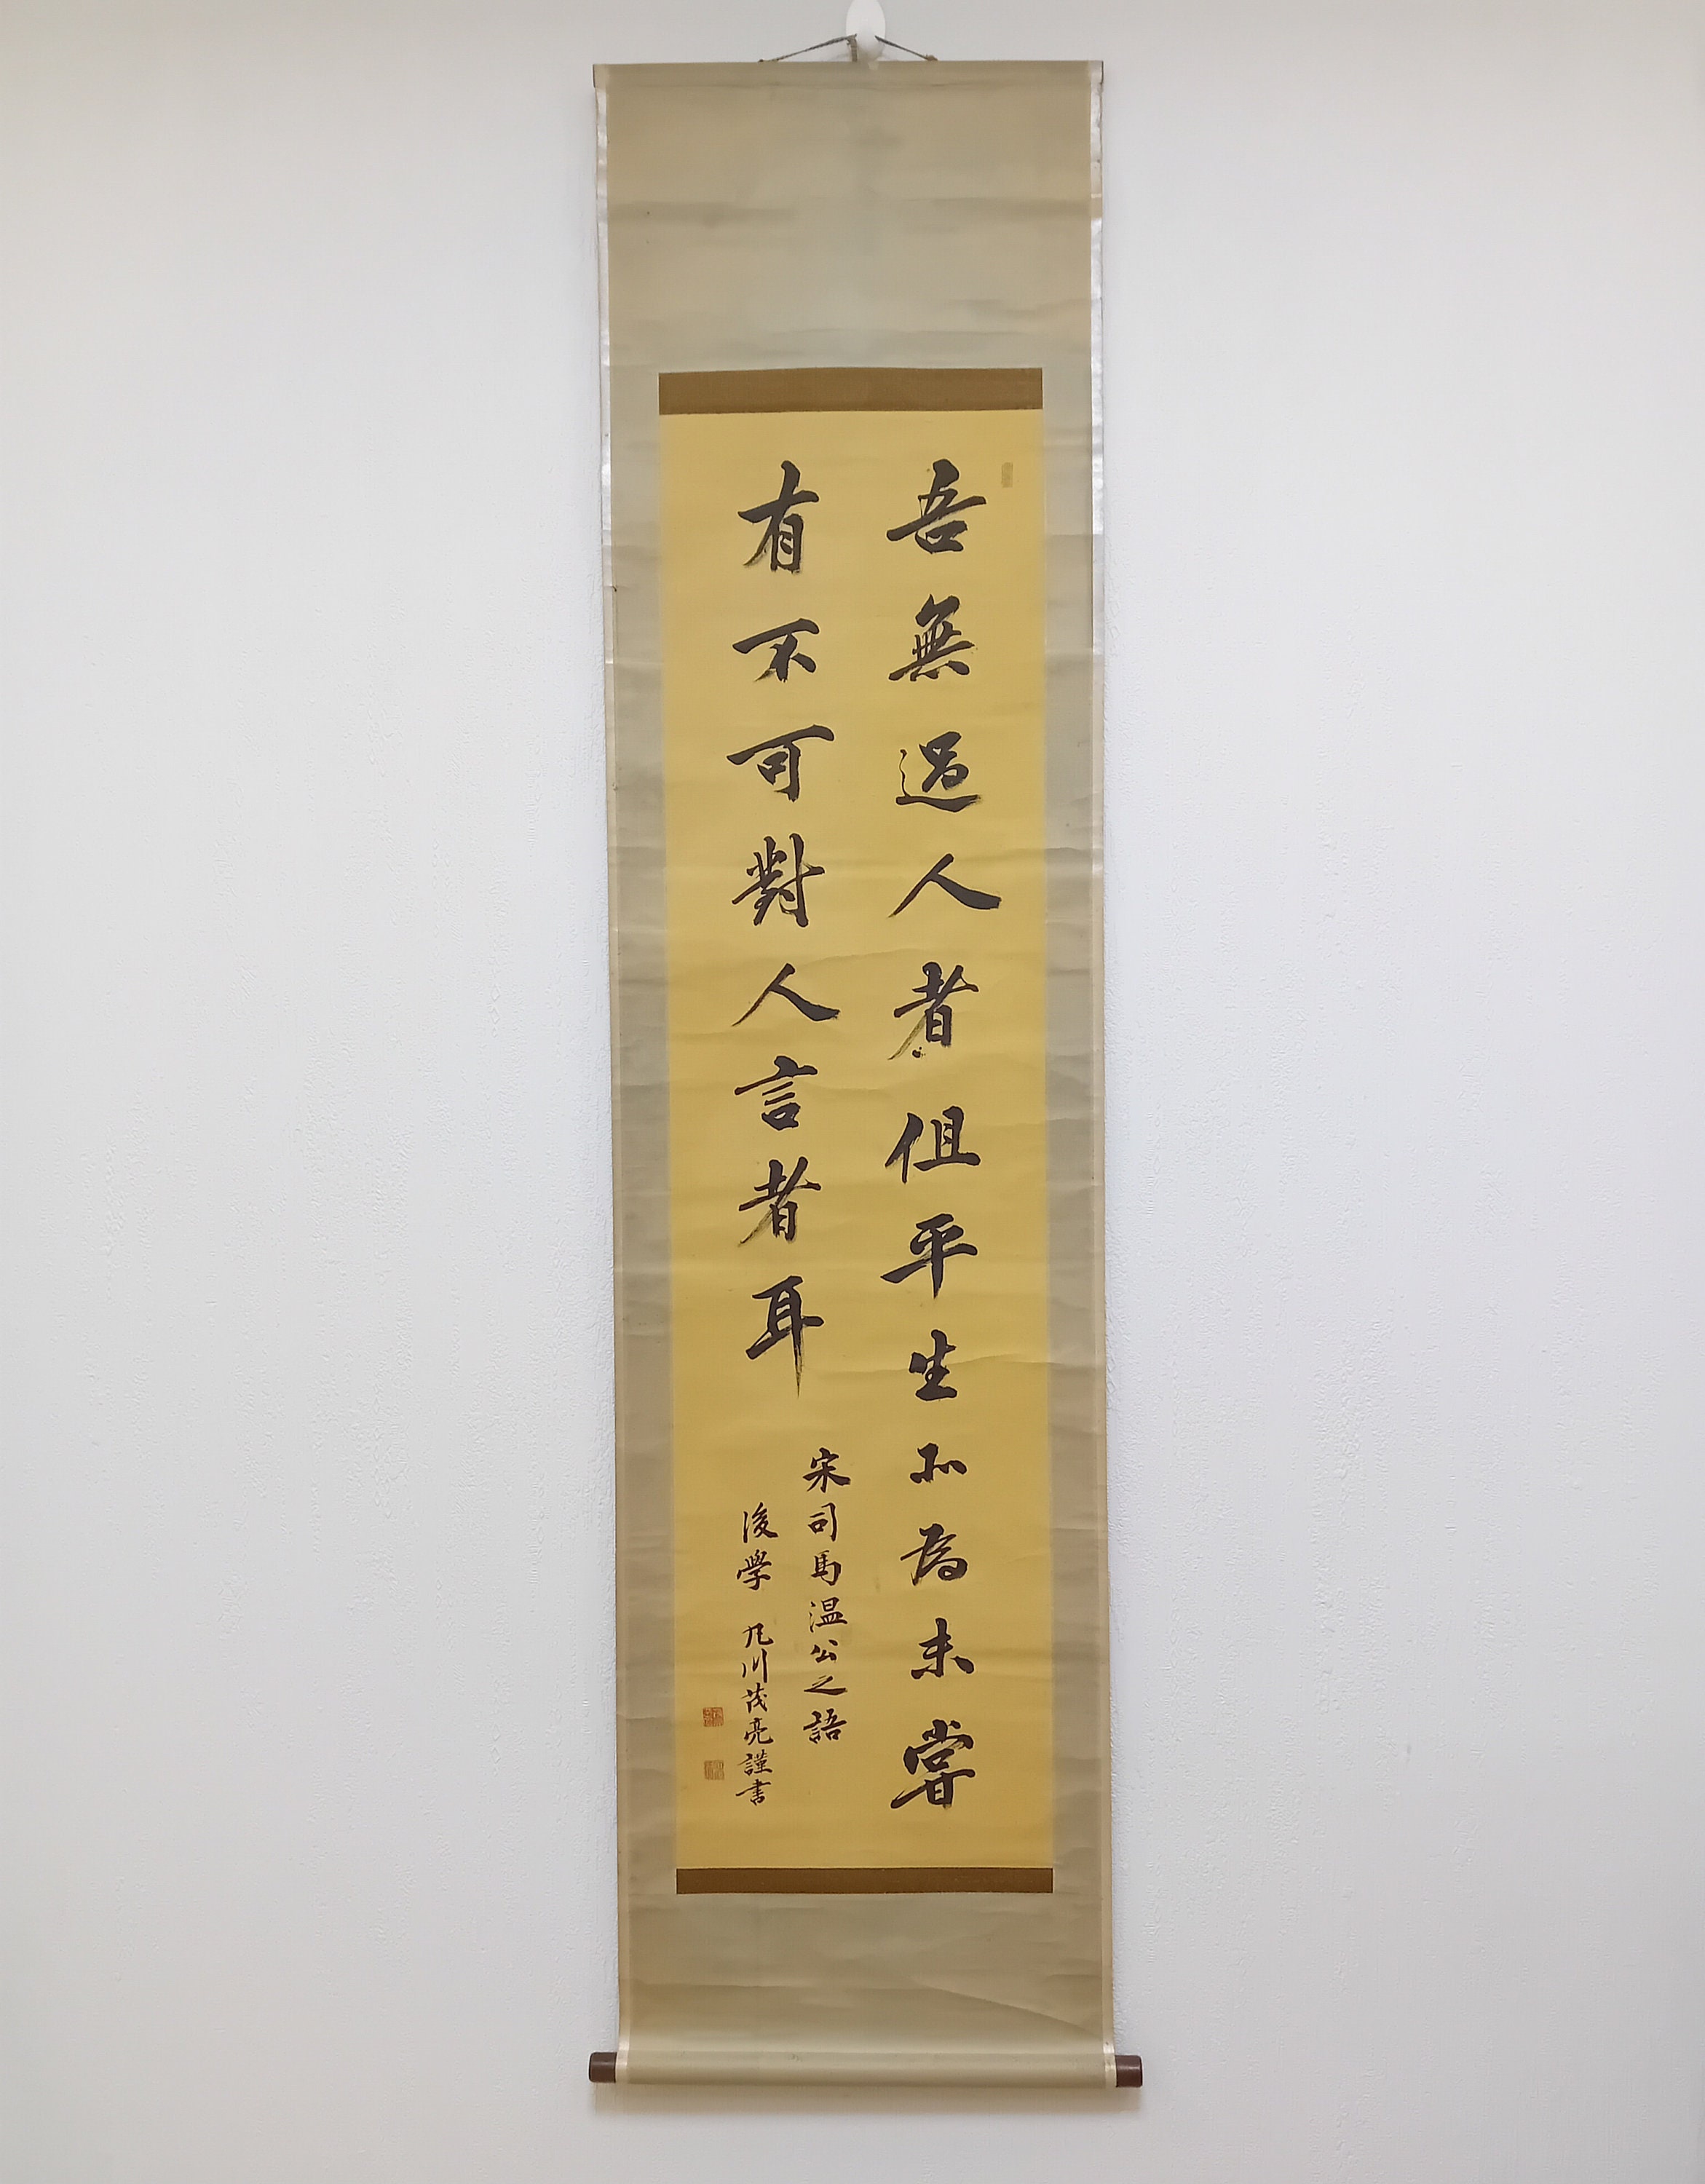 吾無過人者但平生所為未嘗
有不可對人言者耳
宋司馬温公之語
後學 凡川茂亮謹書